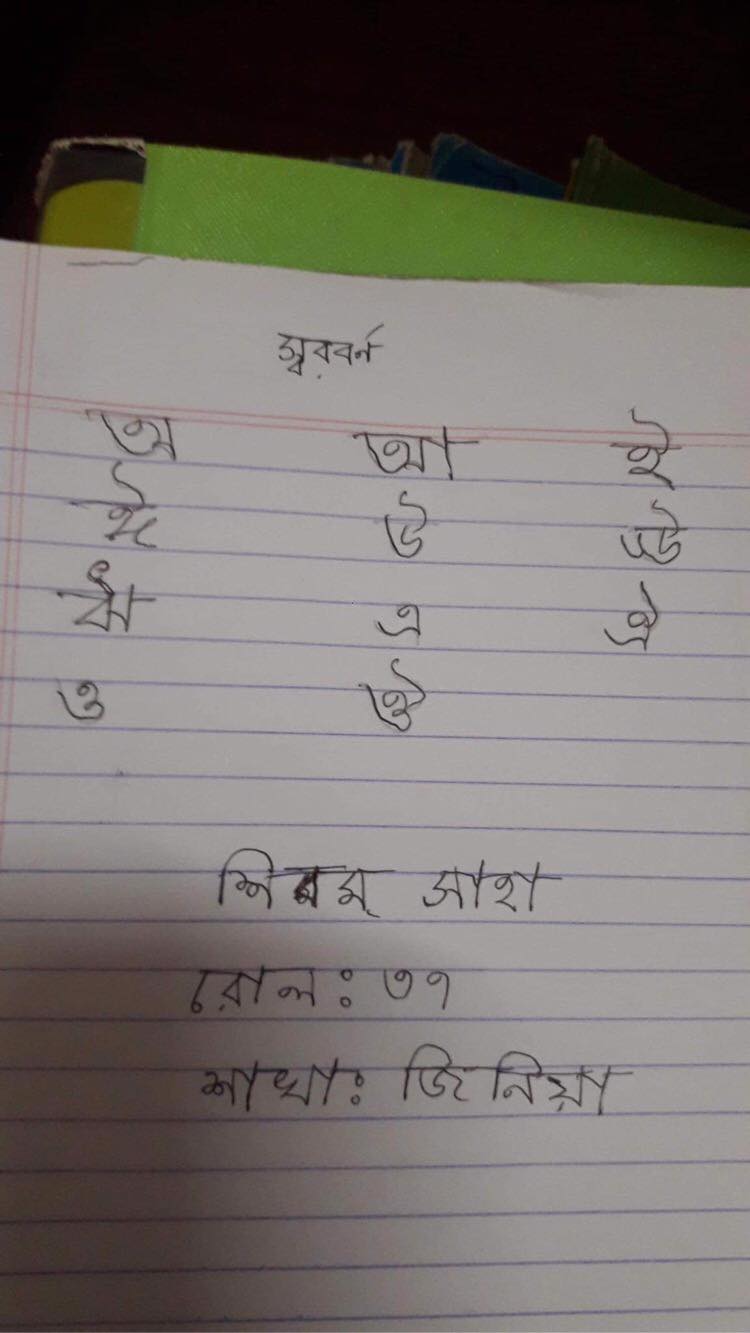 স্বরবর্ন
অ আ ই
ঈ উ ঊ
ঋ এ ঐ
ও ঔ
সাহা
রোল: ৩৭
শাখা: জিনিয়া